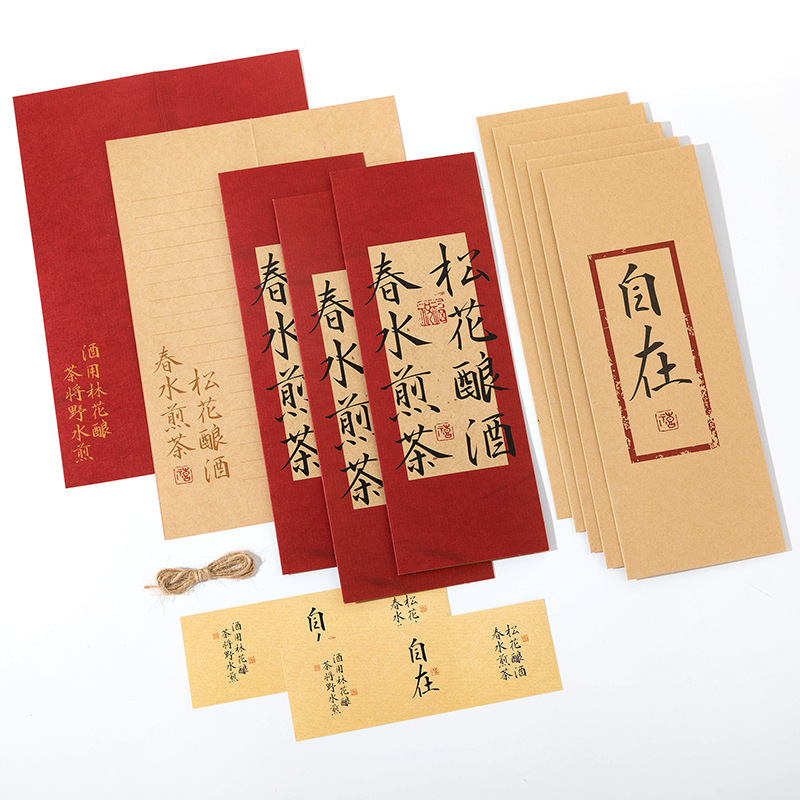 酒用林花酿
茶将野水煎
松花酿酒
春水煎茶
春水煎茶
春水煎茶
松花酿酒
春水煎茶
自在
酒用林花酿
茶将野水煎
自
松花
春水
酒用林花酿
茶将野水煎
自在
松花酿酒
春水煎茶